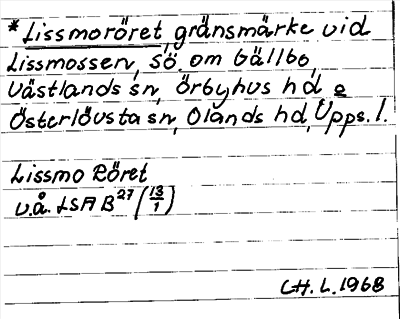 *Lissmoröret, gränsmärke vid
Lissmossen, sö. om Gällbo,
Västlands sn, Örbyhus hd o
Österlövsta sn, Olands hd, Upps. l.
Lissmo Röret
u.å. LSA B²⁷ (13/1)
CH. L. 1968